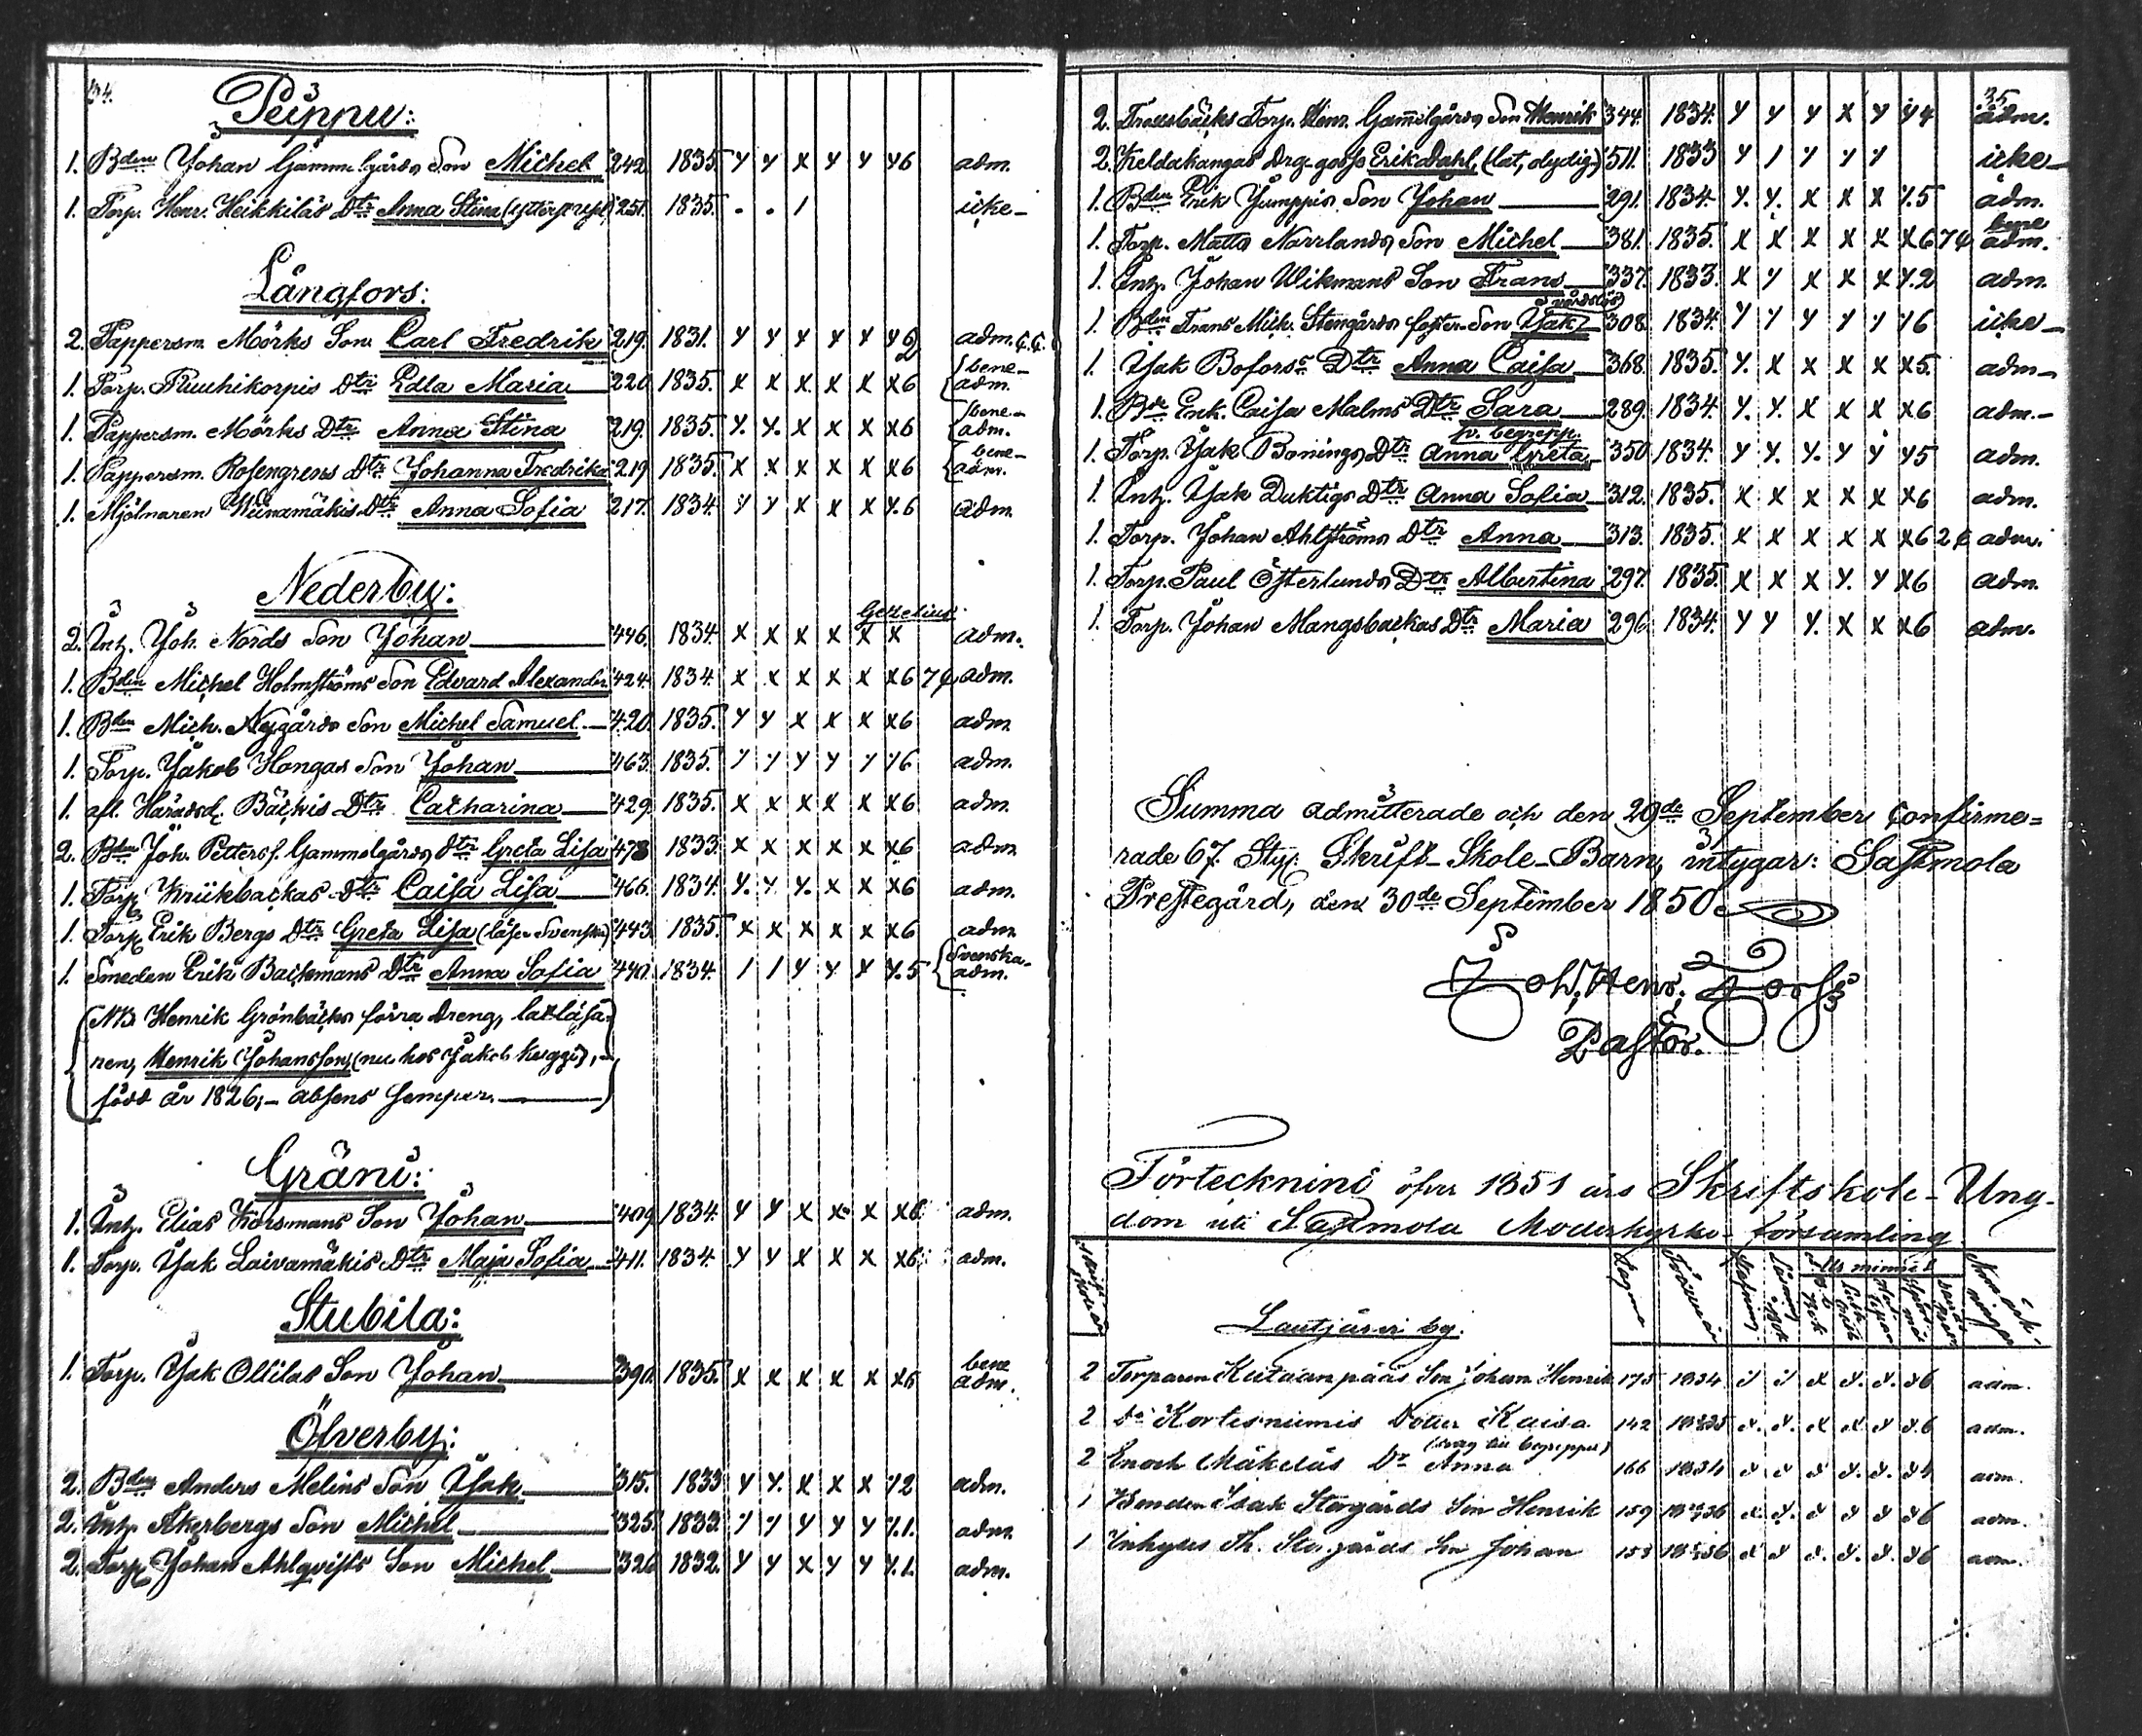 34.
Peippu:
1. Bden Johan Gammelgårds Son Michel 242. 1835. y y x y y y6 adm.
1. Torp. Henr. Heikkiläs Dtr Anna Stina 251. 1835. . . 1 icke-
Långfors:
2. Pappersm. Mörks Son Carl Fredrik 219. 1831. y y y y y y2 adm. c.c.
1. Torp. Ruuhikorpis Dtr Edla Maria 220. 1835. x x x x x x6 bene-adm.
1. Pappersm. Mörks Dtr Anna Stina 219. 1835. y. y. x x x x6 bene-adm.
1. Pappersm. Rosengrens Dtr Johanna Fredrika 219 1835. x x x x x x6 bene-adm.
1. Mjölnaren Wiinamäkis Dtr Anna Sofia 217. 1834 y y x x x y.6 adm.
Nederby:
2. Inh. Joh. Nords Son Johan 446. 1834. x x x x x x adm.
1. Bden Michel Holmströms Son Edvard Alexander 424. 1834. x x x x x x6 7 adm.
1. Bden Mich. Nygårds Son Michel Samuel 420. 1835. y y x x x x6 adm.
1. Torp. Jakob Hongas Son Johan 463. 1835. y y y y y y6 adm.
1. afl. Häradsd. Bäckis Dtr Catharina 429. 1835. x x x x x x6 adm.
2. Bden Joh. Petterss. Gammelgårds dtr Greta Lisa 478 1833. x x x x x x6 adm.
1. Torp. Kniikbackas Dtr Caisa Lisa 466. 1834. y. y y. x x x6 adm.
1. Torp. Erik Bergs Dtr Greta Lisa (läser Svenska) 443. 1835. x x x x x x6 adm.
1. Smeden Erik Backmans Dtr Anna Sofia 440. 1834. 1 1 y y x y.5 Svenska-adm.
NB. Henrik Grönbäcks förra Dreng, latläsa-
ren, Henrik Johansson, (nu hos Jakob Keggi),
född år 1826,- absens semper.
Gräni:
1. Inh. Elias Korsmans Son Johan 409. 1834. y y x x x x6 adm.
1. Torp. Isak Laivamäkis Dtr Maja Sofia 411. 1834. y y x x x x6 adm.
Stubila:
1. Torp. Isak Ollilas Son Johan 390. 1835. x x x x x x6 bene adm.
Ölverby:
2. Bden Anders Melins Son Isak 315. 1833 y y. x x x y2 adm.
2. Inh. Åkerbergs Son Michel 325. 1833. y y y y y y.1. adm.
2. Torp. Johan Ahlqvists Son Michel 326 1832. y y x y y y.1. adm.
35
2. Torp. Henr. Gammelgårds Son Henrik 344. 1834. y y y x y y4 adm.
2. Keldakangas Drg. gosse Erik Dahl, (lat, olydig) 511. 1833 y 1 y y y icke-
1. Bden Erik Jumppis Son Johan 291. 1834. y. y. x x x y.5 adm.
1. Torp. Matts Norrlands Son Michel 381. 1835. x x x x x x6 7 bene adm.
1. Inh. Johan Wikmans Son Frans 337. 1833. x y x x x y.2 adm.
1. Bden Frans Mich. Stengårds foster-Son Isak 308. 1834. y y y y y y6 icke-
1. Isak Bofors Dtr Anna Caisa 368. 1835. y. x x x x x5. adm-
1. Bde Enk. Caisa Malms Dtr Sara 289. 1834. y. y. x x x x6 adm.-
1. Torp. Isak Bonings Dtr Anna Greta 350 1834. y y. y. y y y5 adm.
1. Inh. Isak Duktigs Dtr Anna Sofia 312. 1835. x x x x x x6 adm.
1. Torp. Johan Ahlströms Dtr Anna 313. 1835. x x x x x x6 2 adm.
1. Torp. Paul Österlunds Dtr Albertina 297. 1835. x x x y. y x6 adm.
1. Torp. Johan Mangsbackas Dtr Maria 296. 1834. y y y. x x x6 adm.
Summa admitterade och den 29de September confirme=
rade 67. Styc. Skrift-Skole-Barn, intygar: Sastmola
Prestegård, den 30de September 1850.
Joh. Henr. Forss
Pastor.
Förteckning öfver 1851 års Skriftskole-Ung-
dom uti Sastmola Moderkyrko-församling
Utur minnet
Lautjärvi by.
2 Torparen Kutaanpääs Son Johan Henrik 175 1834 adm.
2 do Kortesniemis Dotter Kaisa 142 1835 adm.
2 Enoch Mäkeläs Dr Anna 166 1834 adm.
1 Bonden Isak Storgårds Son Henrik 159 1836 adm.
1 Inhyses Th. Storgårds Son Johan 153 1836 adm.